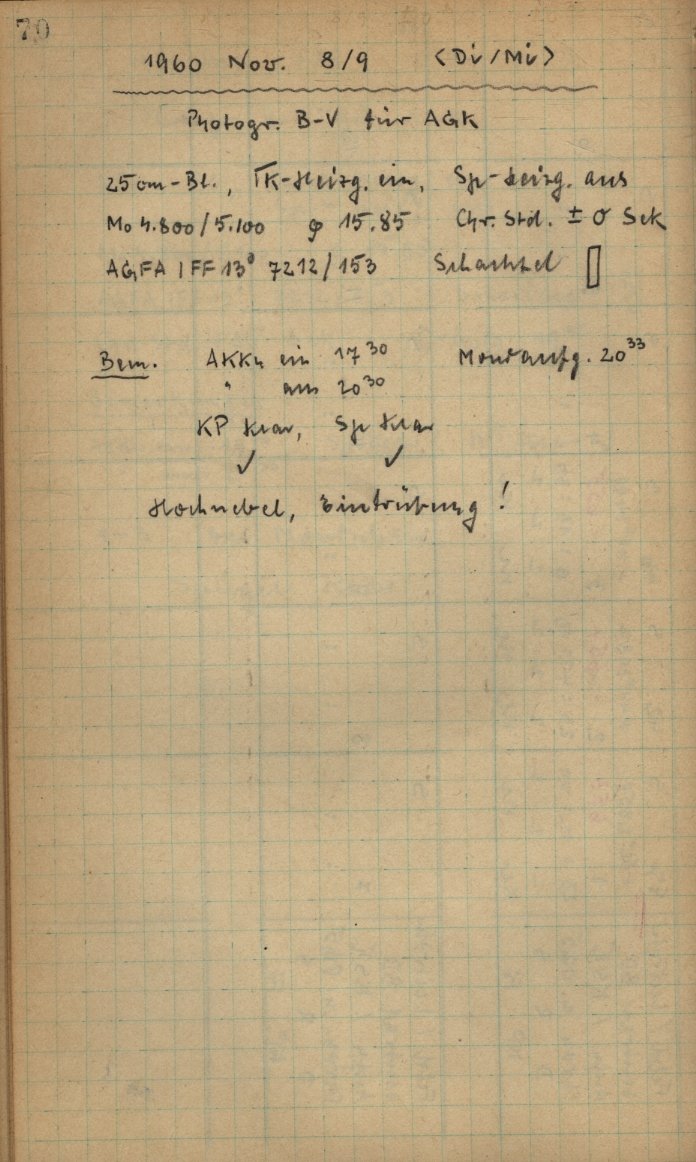 70
1960 Nov. 8/9 <Di/Mi>
Photogr. B-V für AGK
25cm-Bl., TK-Heizg. ein, Sp-Heizg. aus
Mo 4.800/5.100 φ 15.85 Chr. Std. ± 0 Sek
AGFA IFF 13° 7212/153 Schachtel
Bem. AKKu ein 17³⁰ Mondaufg. 20³³
" aus 20³⁰
KP klar, Sp klar
✓ ✓
Hochnebel, Eintrübung!